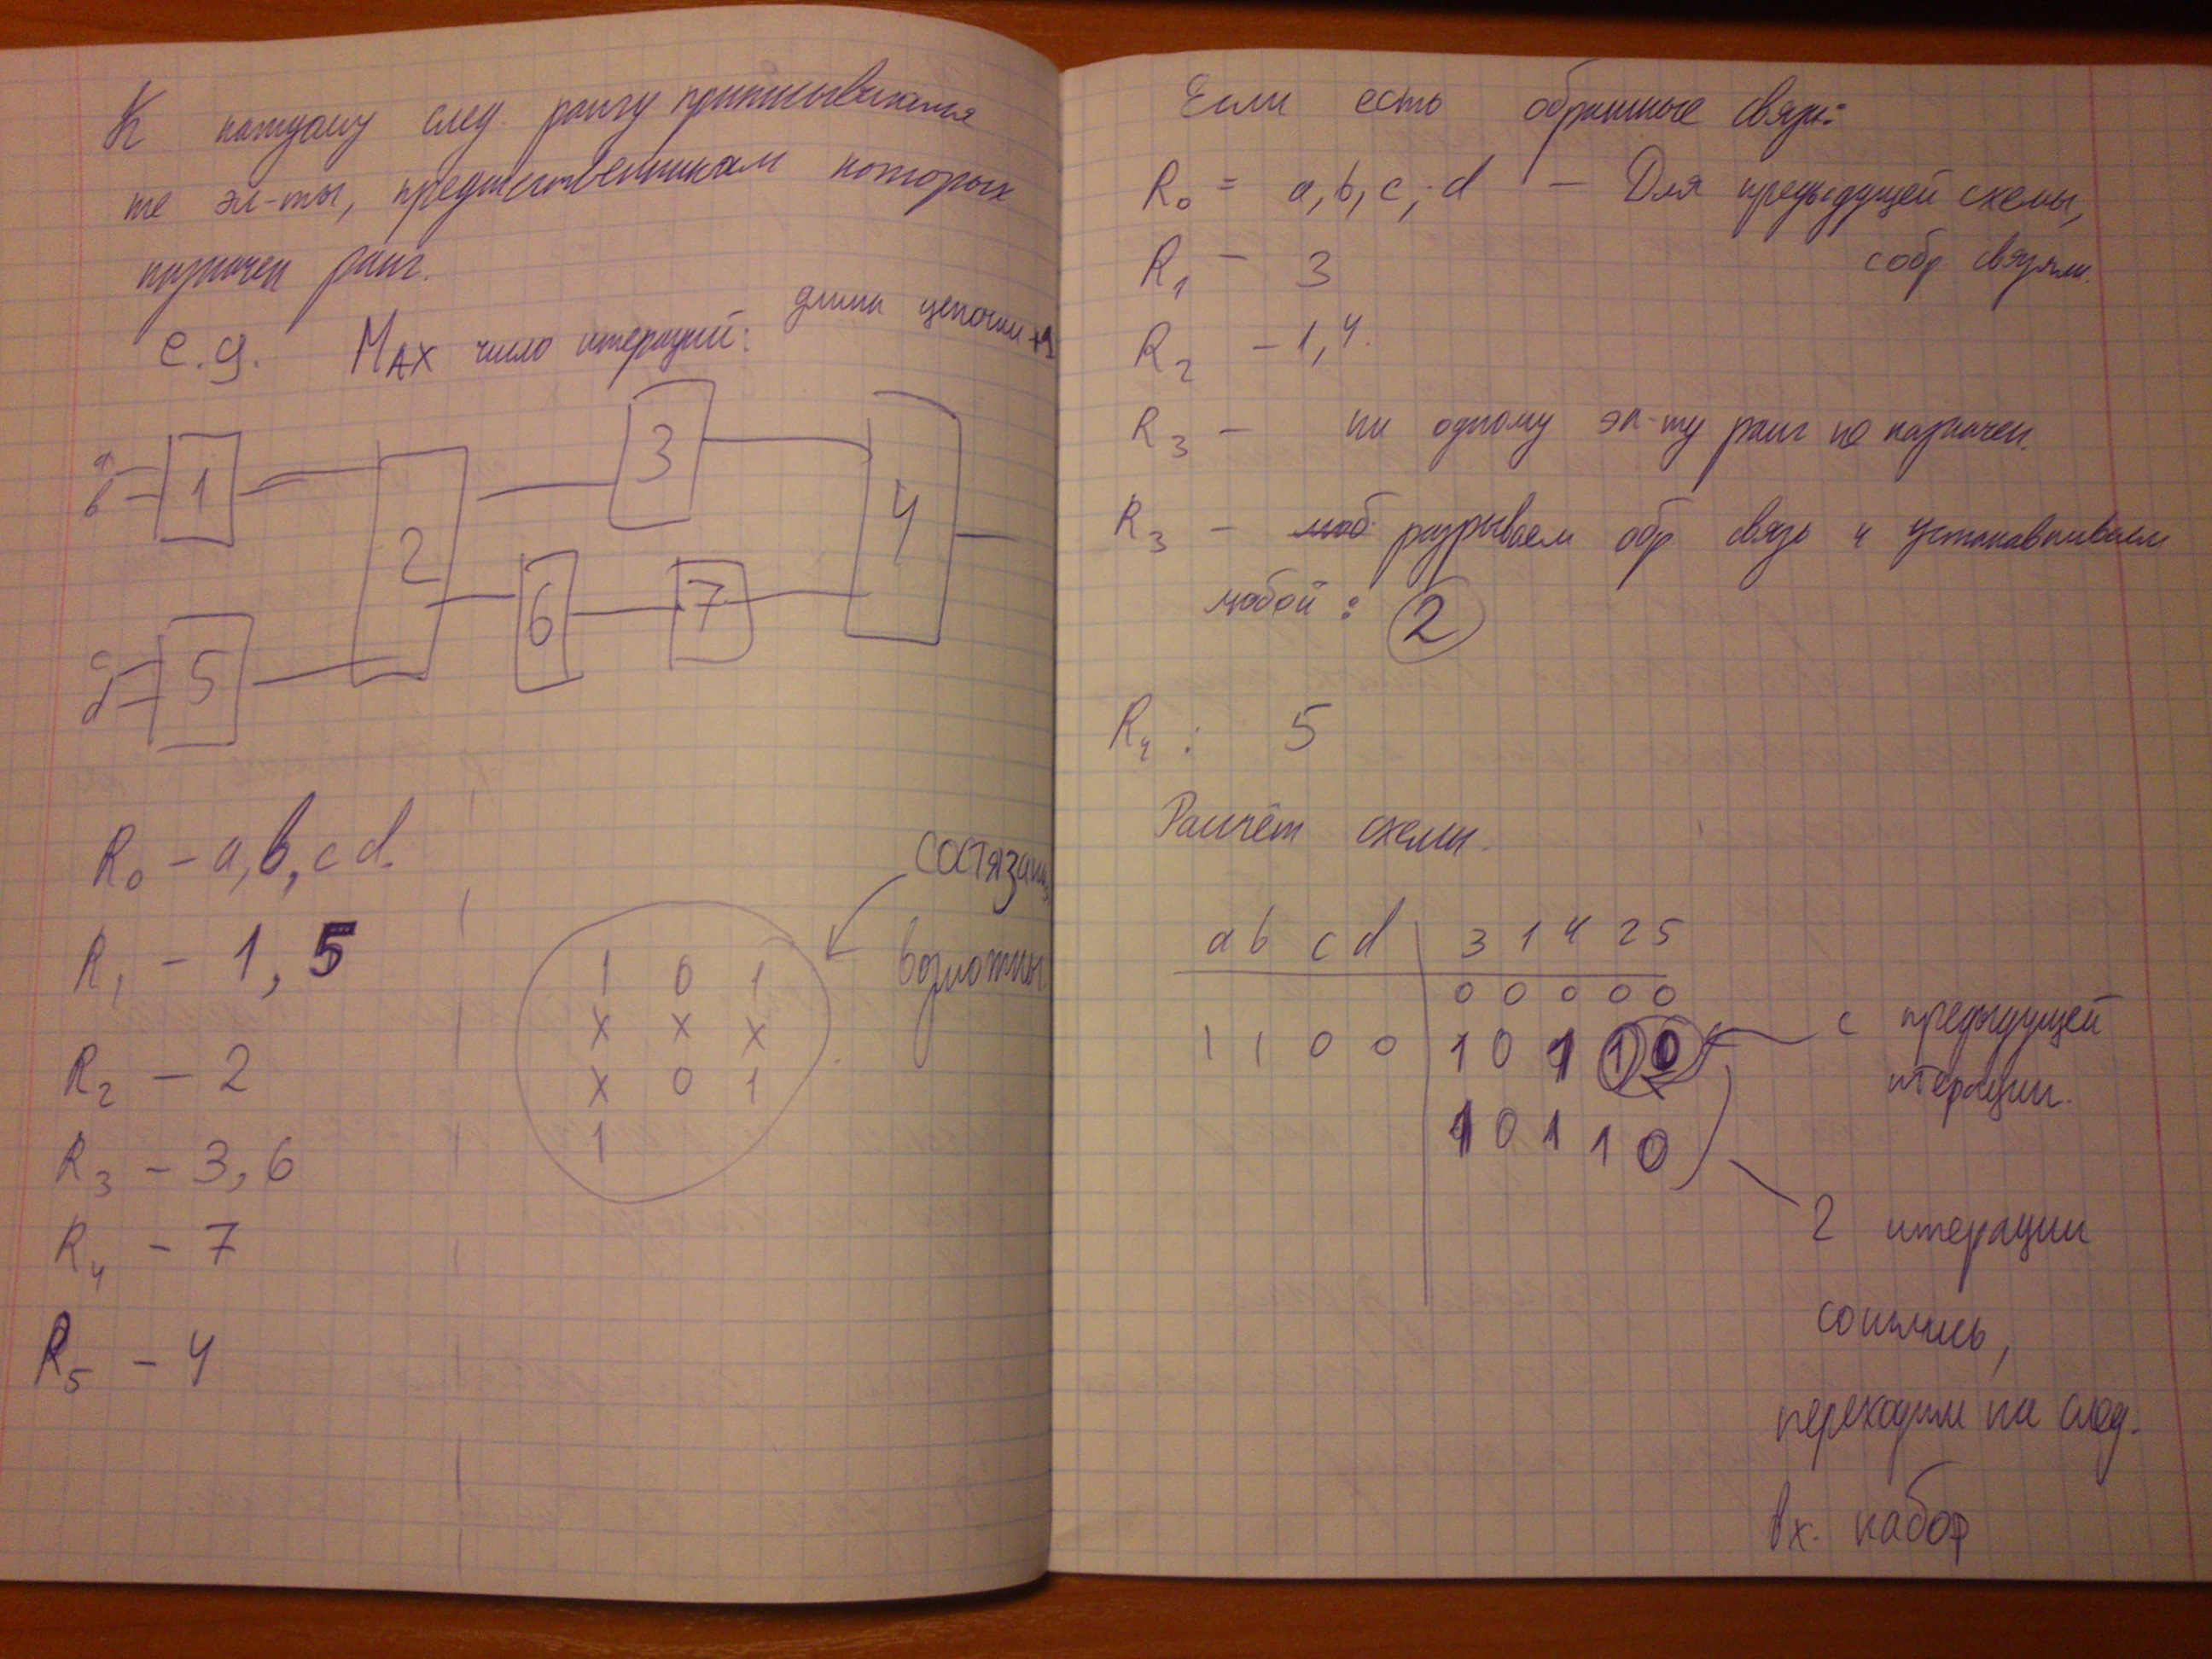 К каждому след. рангу приписываются
те эл-ты, предшественникам которых
назначен ранг.
e.g. MAX число итераций: длина цепочки +1
3
a
b
1
2
4
6
7
c
d
5
R0 - a, b, c d.
R1 - 1, 5
R2 - 2
R3 - 3, 6
R4 - 7
R5 - 4
состязания
возможны
1 0 1
X X X
X 0 1
1
Если есть обратные связи:
R0 = a, b, c, d - Для предыдущей схемы,
с обр связями.
R1 - 3
R2 - 1, 4.
R3 - ни одному эл-ту ранг не назначен.
R3 - разрываем обр связь и устанавливаем
любой: 2
R4 : 5
Расчёт схемы.
a b c d 3 1 4 2 5
0 0 0 0 0
1 1 0 0 1 0 1 1 0
1 0 1 1 0
с предыдущей
итерации.
2 итерации
сошлись,
переходим на след.
вх. набор